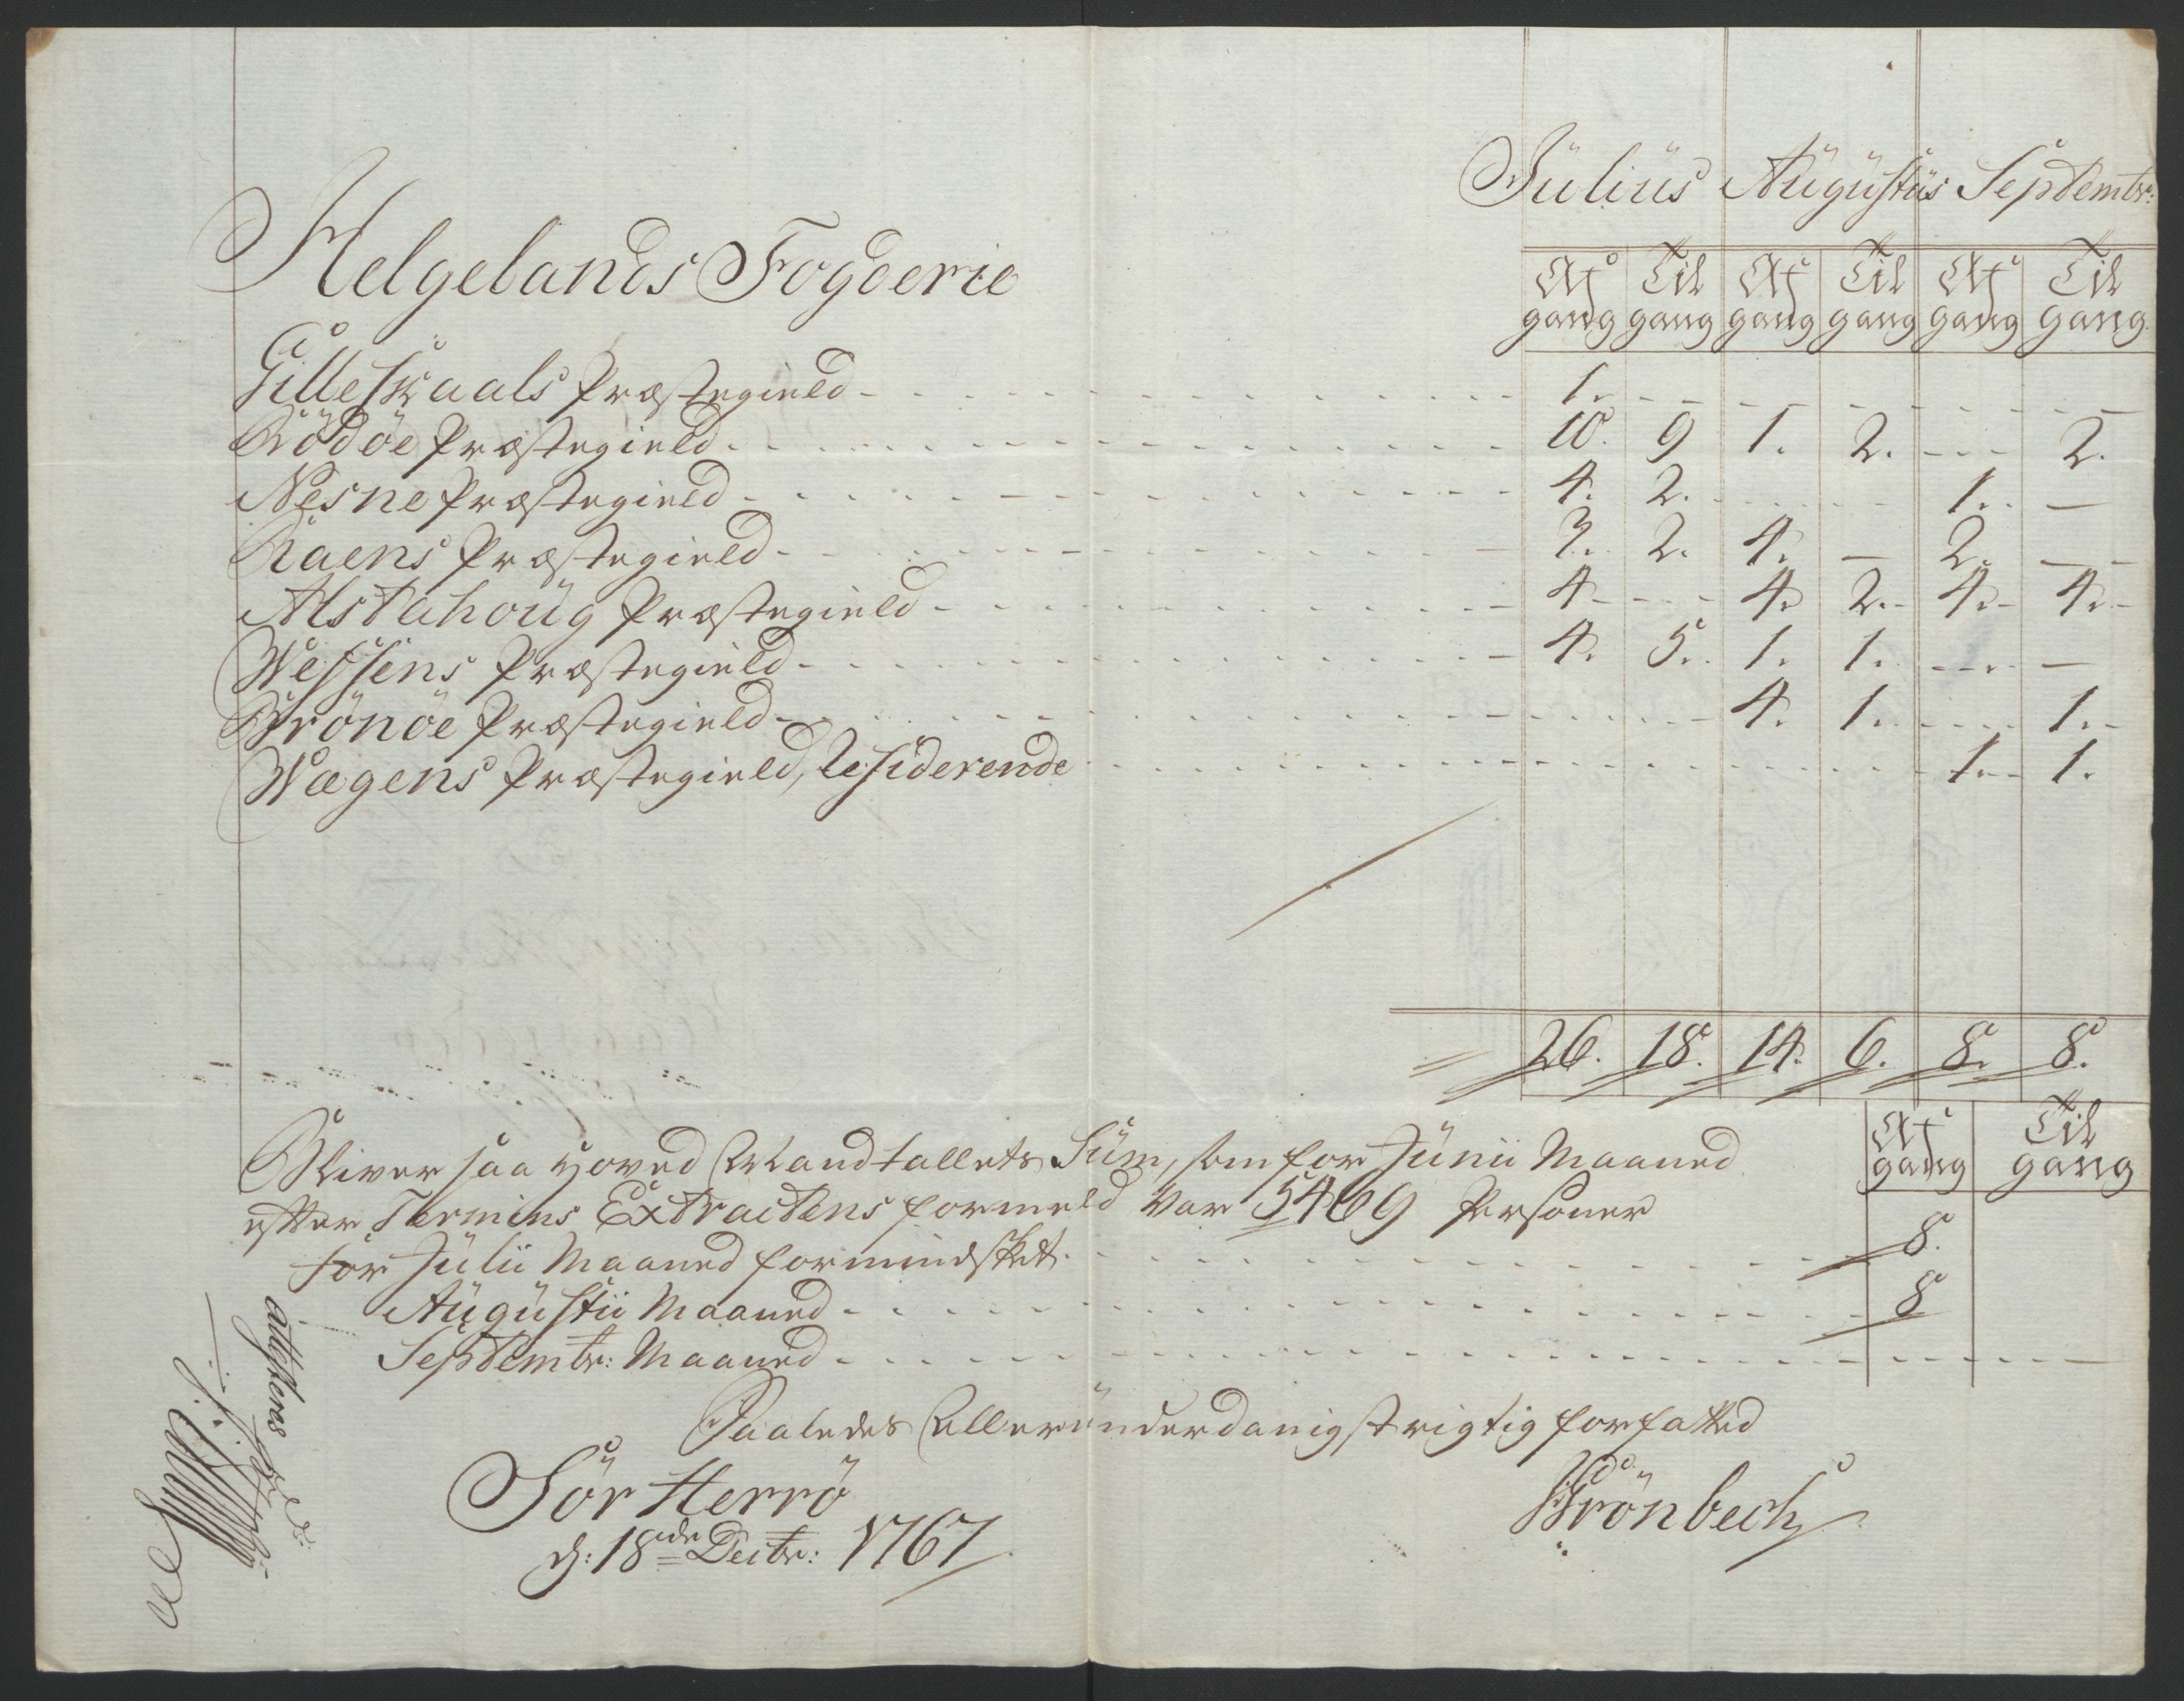 Julius Augustus Septembr:
Helgelands Fogderie
Af Til Af Til Af Til
gang gang gang gang gang gang
Gilleskaals Præstegield - 1. - - - - -
Rödöe Præstegield - 10. 9 1. 2. - 2.
Nesne Præstegield - 4. 2. - - 1. -
Raens Præstegield - 3. 2. 4. - 2. -
Alstahoug Præstegield - 4 - 4. 2. 4. 4.
Wefsens Præstegield - 4. 5. 1. 1. - -
Brönöe Præstegield - 4. 1. - 1.
Wægens Præstegield, Residerende - 1. 1.
26. 18. 14. 6. 8. 8.
Af Til
gang gang
Bliver saa hoved Mandtallets Sum, som for Junii Maaned
efter Termins Extractens formeld var 5469 Personer
for Julii Maaned formindsket - 8.
Augustii Maaned - 8
Septembr: Maaned -
Saaledes Allerunderdanigst rigtig forfatted
Sör Herrö
d: 18de Decbr: 1767
Brönbech
attesteres